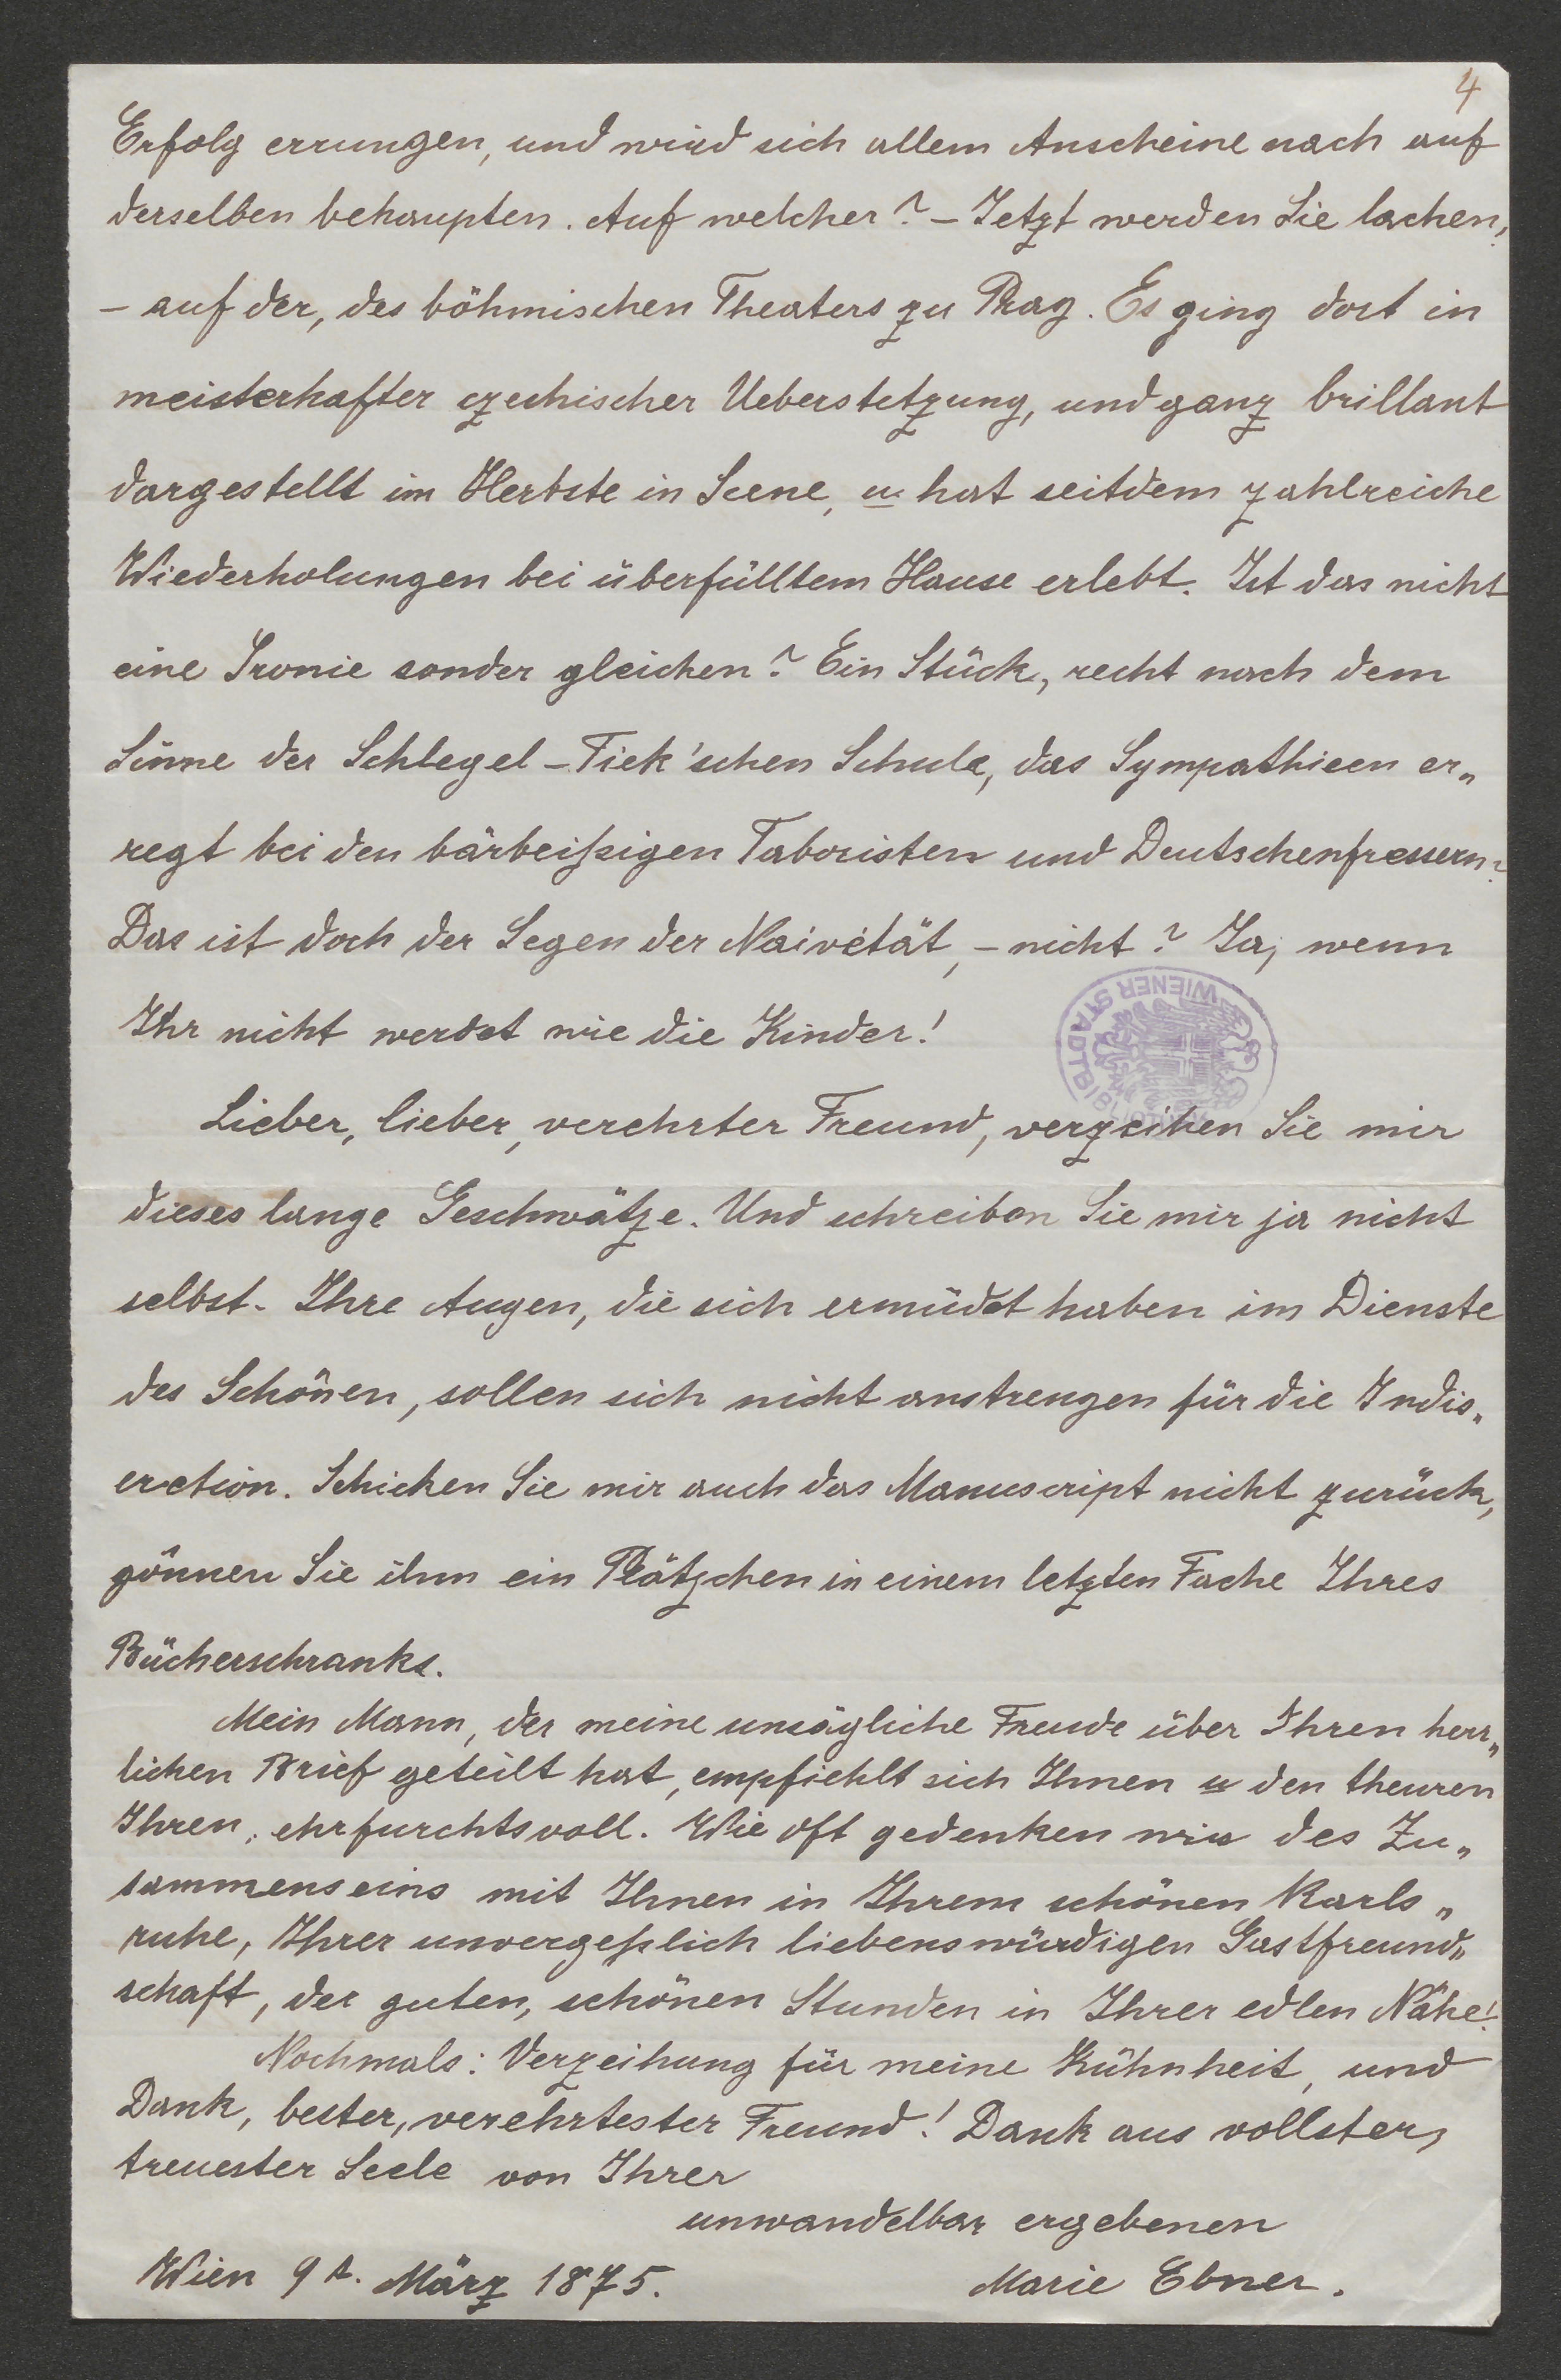 4
Erfolg errungen, und wird sich allem Anscheine nach auf
derselben behaupten. Auf welcher? – Jetzt werden Sie lachen,
– auf der, des böhmischen Theaters zu Prag. Es ging dort in
meisterhafter czechischer Ueberstetzung, und ganz brillant
dargestellt im Herbste in Scene, u. hat seitdem zahlreiche
Wiederholungen bei überfülltem Hause erlebt. Ist das nicht
eine Ironie sonder gleichen? Ein Stück, recht nach dem
Sinne der Schlegel-Tiek'schen Schule, das Sympathieen er„
regt bei den bärbeißigen Taboristen und Deutschenfressern?
Das ist doch der Segen der Naivetät, – nicht? Ja, wenn
Ihr nicht werdet wie die Kinder!
WIENER STADTBIBLIOTHEK
Lieber, lieber, verehrter Freund, verzeihen Sie mir
dieses lange Geschwätze. Und schreiben Sie mir ja nicht
selbst. Ihre Augen, die sich ermüdet haben im Dienste
des Schönen, sollen sich nicht anstrengen für die Indis„
cretion. Schicken Sie mir auch das Manuscript nicht zurück,
gönnen Sie ihm ein Plätzchen in einem letzten Fache Ihres
Bücherschranks.
Mein Mann, der meine unsägliche Freude über Ihren herr„
lichen Brief geteilt hat, empfiehlt sich Ihnen u den theuren
Ihren, ehrfurchtsvoll. Wie oft gedenken wir des Zu„
sammenseins mit Ihnen in Ihrem schönen Karls„
ruhe, Ihrer unvergeßlich liebenswürdigen Gastfreund„
schaft, der guten, schönen Stunden in Ihrer edlen Nähe!
Nochmals: Verzeihung für meine Kühnheit, und
Dank, bester, verehrtester Freund! Dank aus vollster,
treuester Seele von Ihrer
unwandelbar ergebenen
Wien 9t. März 1875. Marie Ebner.